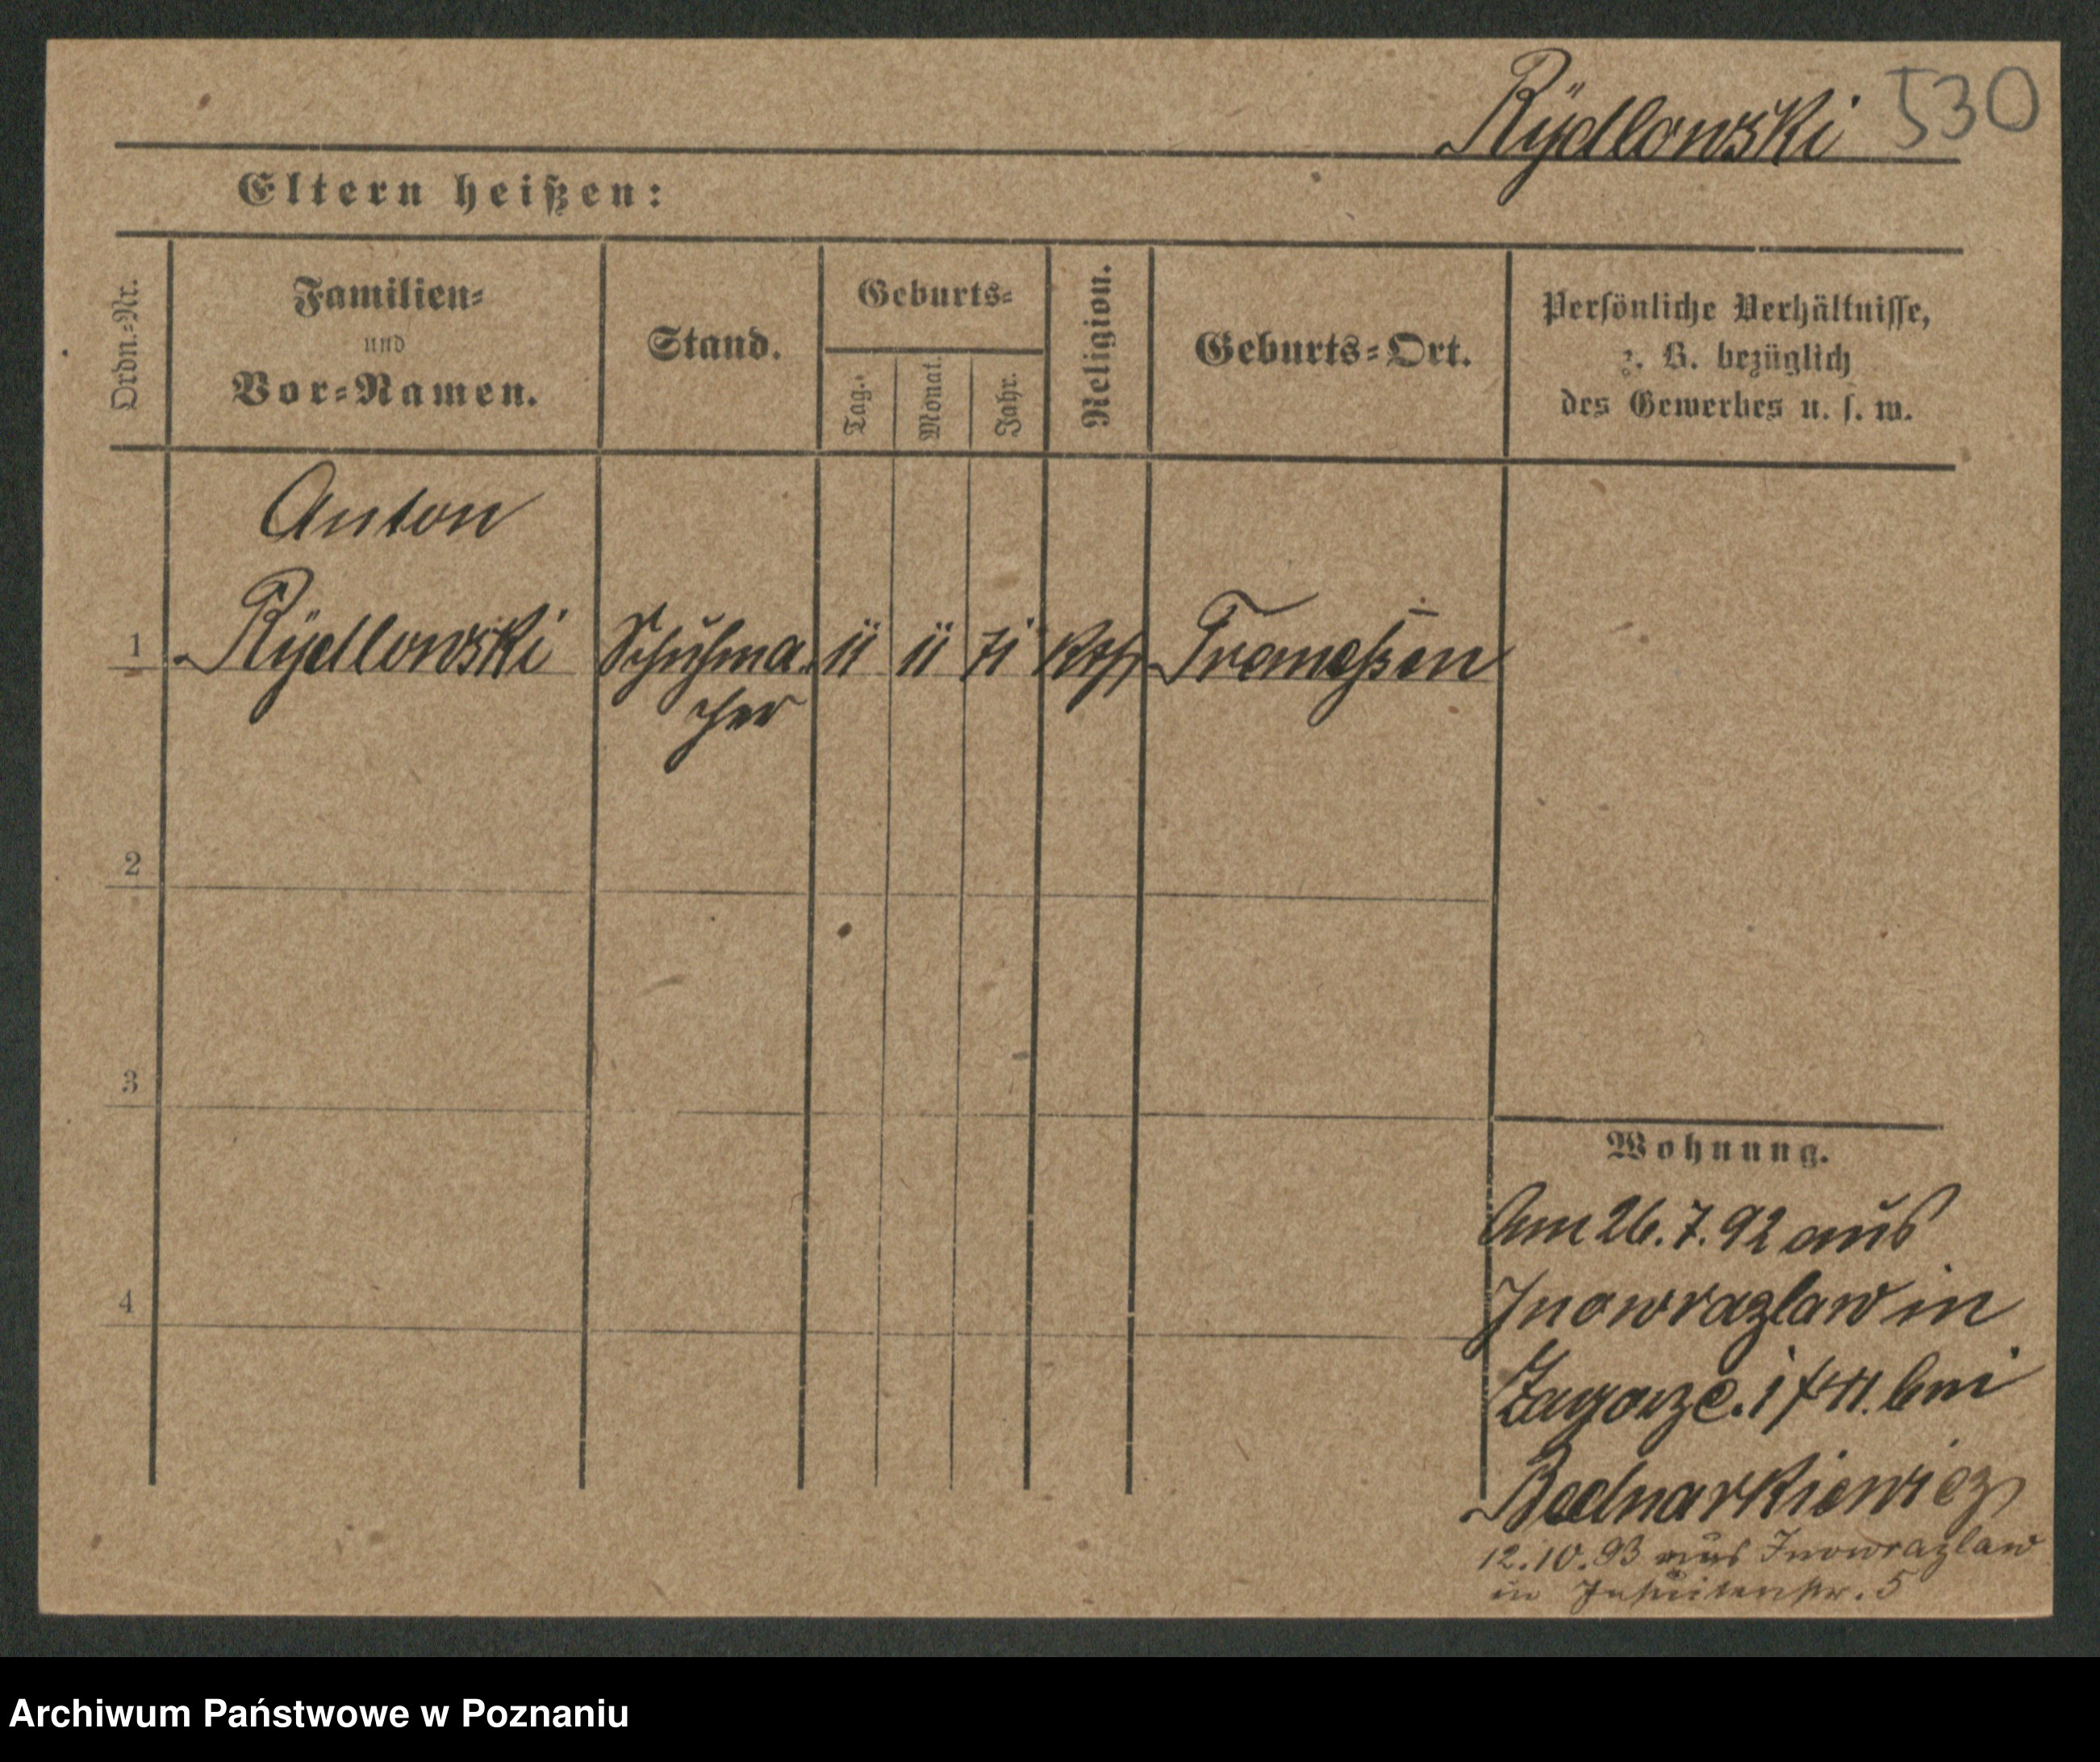 Rÿdlowski 530
Eltern heißen:
Ordn.-Nr.
Familien-
und
Vor-Namen.
Stand.
Geburts-
Tag.
Monat.
Jahr.
Religion.
Geburts-Ort.
Persönliche Verhältnisse,
z. B. bezüglich
des Gewerbes u. s. w.
Anton
1 Rÿdlowski Schuhma- 11 11 71 kth Tremeßen
cher
2
3
4
Wohnung.
Am 26.7.92 aus
Inowrazlaw in
Zagorze bei
Bednarkiewicz
12.10.93 aus Inowrazlaw
in Jesuitenstr. 5
Archiwum Państwowe w Poznaniu